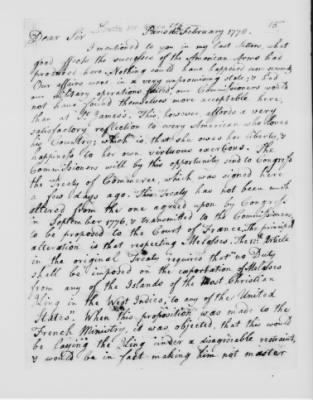 15
Dear Sir Paris February 1778.
I mentioned to you in my last letter, what
good effects the successes of the American Arms has
produced here. Nothing could have happened
Our affairs were in a very unpromising state; & had
our military operations failed, our Commissioners wou'd
not have found themselves more acceptable here,
than at St. James's. This, however, affords a very
satisfactory reflection to every American who loves
his Country; which is, that she owes her liberty, &
happiness to her own virtuous exertions. The
Commissioners will by this opportunity send to Congress
the Treaty of Commerce, which was signed here
a few days ago. This Treaty has not been much
altered from the one agreed upon by Congress
in September 1776, & transmitted to the Commissioners
to be proposed to the Court of France. The principal
alteration is that respecting Melasses. The Article
in the original Treaty required that "no Duty
shall be imposed on the exportation of Melasses
from any of the Islands of the most Christian
King in the West Indies, to any of the United
States". When this proposition was made to the
French Ministry, it was objected, that this would
be laying the King under a disagreable restraint,
& would be in fact making him not master